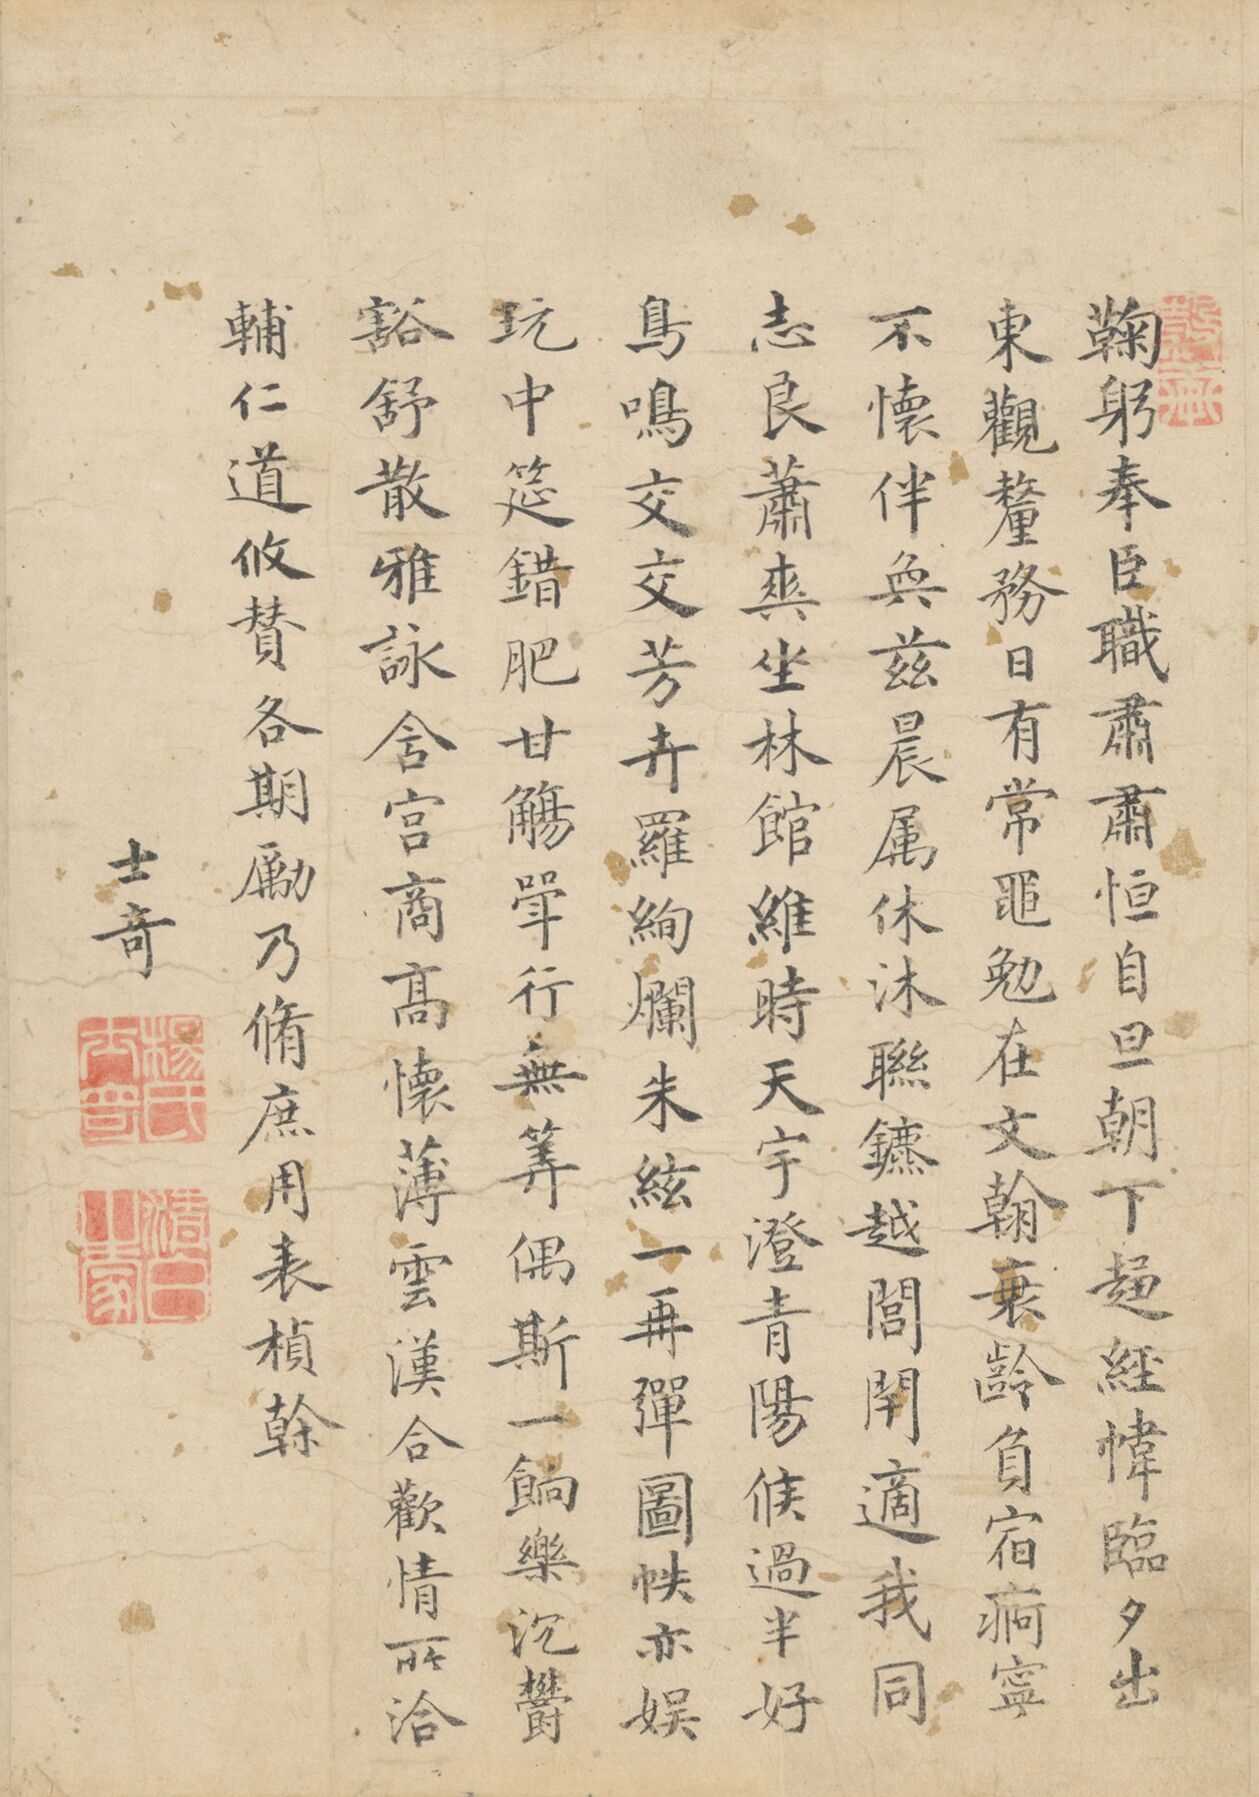 鞠躬奉臣職肅肅恒自旦朝下趨經幃臨夕出
東觀釐務日有常黽勉在文翰衰齡負宿痾寧
不懷伴奐茲晨属休沐聯鑣越閭閈適我同
志良蕭爽坐林館維時天宇澄青陽候過半好
鳥鳴交交芳卉羅絢爛朱絃一再彈圖帙亦娛
玩中筵錯肥甘觴斝行無筭偶斯一餉樂沉鬱
豁舒散雅詠含宮商髙懷薄雲漢合歡情所洽
輔仁道攸賛各期勵乃脩庶用表楨榦
士奇
楊氏